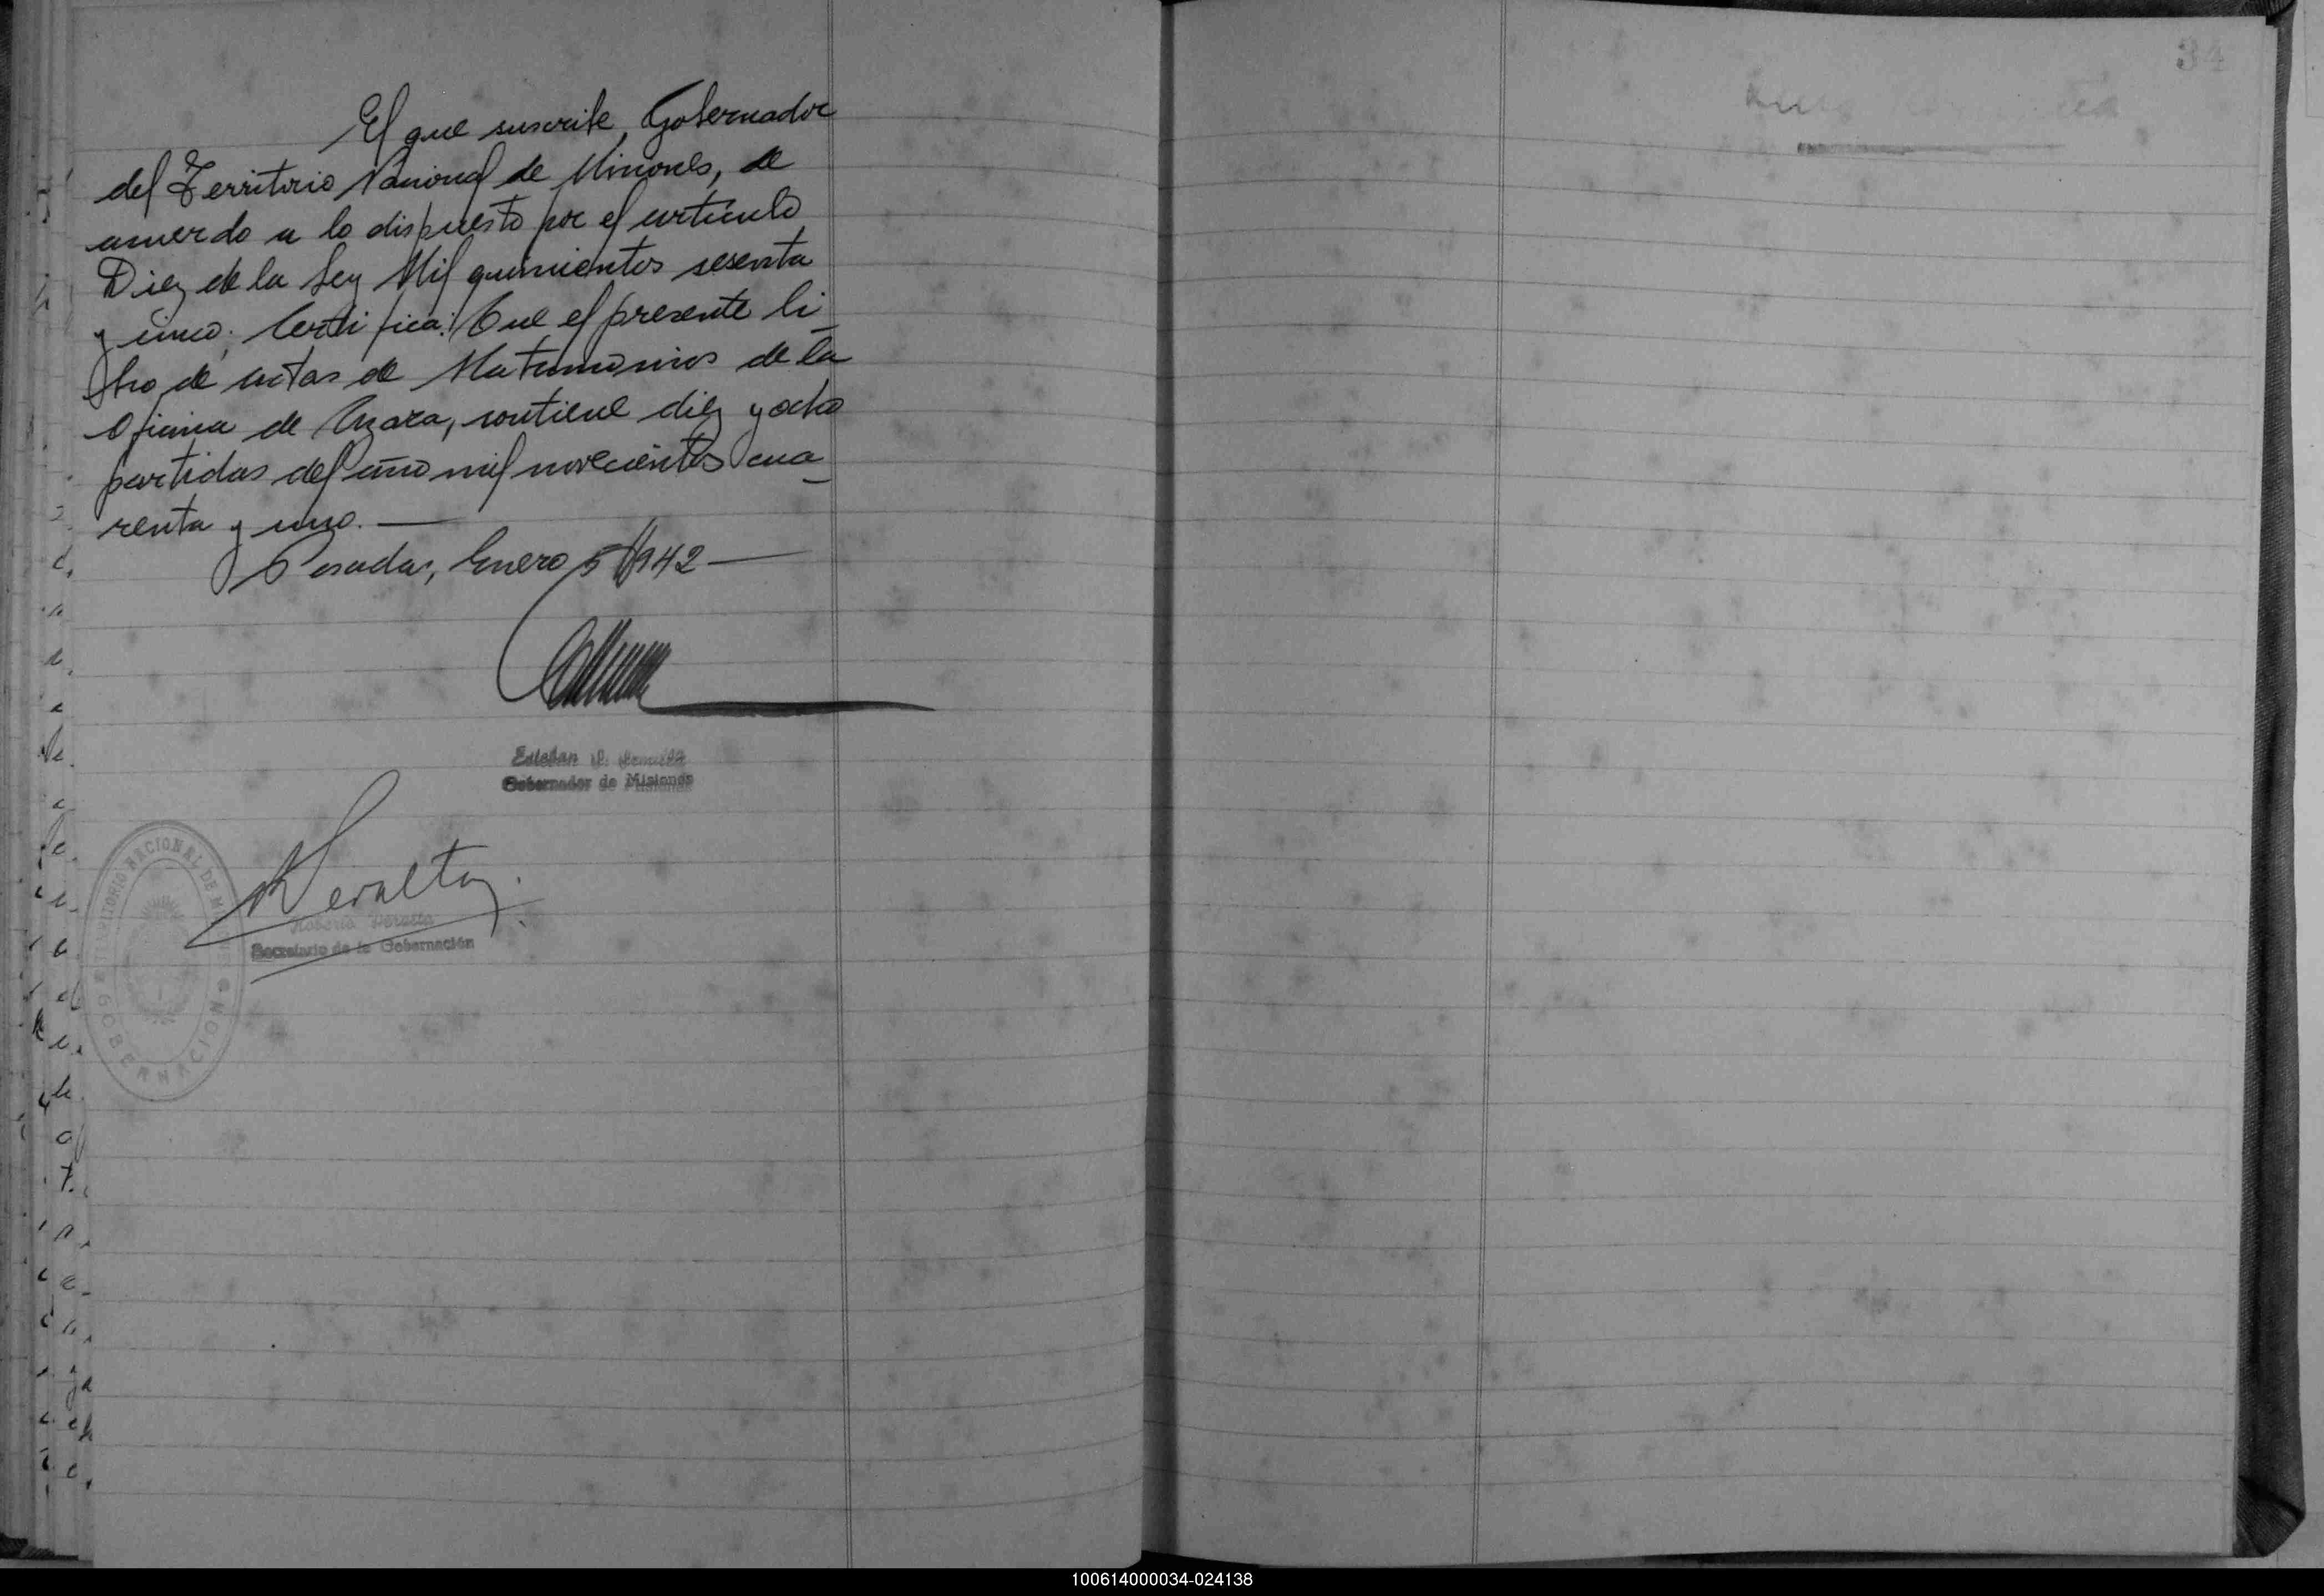 El que suscribe, Gobernador
del Territorio Nacional de Misiones, de
acuerdo a lo dispuesto por el artículo
Diez de la Ley Mil quinientos sesenta
y cinco; Certifica: Que el presente li-
bro de actas de Matrimonios de la
Oficina de Azara, contiene diez y ocho
partidas del año mil novecientos cua-
renta y uno.—
Posadas, Enero 5/1942—
Esteban
Gobernador de Misiones
Peralta
Roberto Peralta
Secretario de la Gobernación
TERRITORIO NACIONAL DE MISIONES
GOBERNACION
34
100614000034-024138